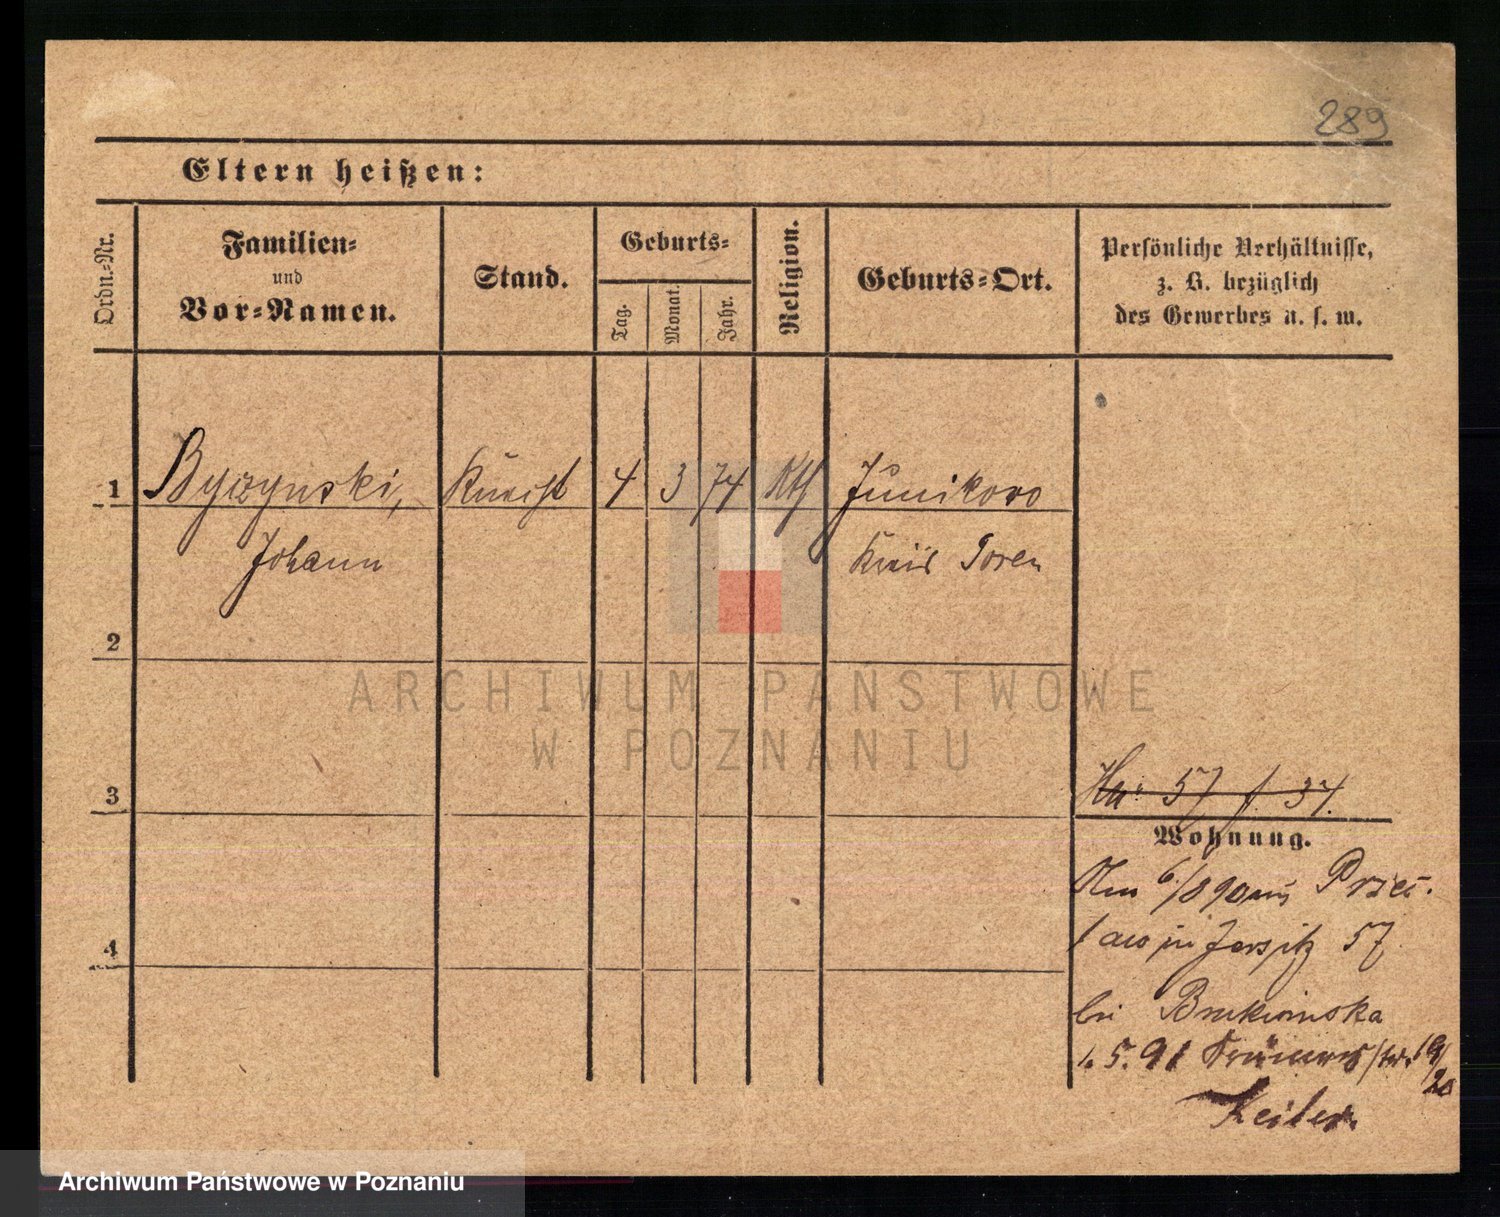 289
Eltern heißen:
Ordn.-Nr.
Familien-
und
Vor-Namen.
Stand.
Geburts-
Tag.
Monat.
Jahr.
Religion.
Geburts-Ort.
Persönliche Verhältnisse,
z. B. bezüglich
des Gewerbes u. s. w.
1 Byczynski, Knecht 4 3 74 Kth Junikowo
Johann Kreis Posen
2
ARCHIWUM PAŃSTWOWE
W POZNANIU
3
57 f 37.
Wohnung.
6/8 90 aus
in Jersitz 57
bei
1.5.91 19/20
Archiwum Państwowe w Poznaniu
4